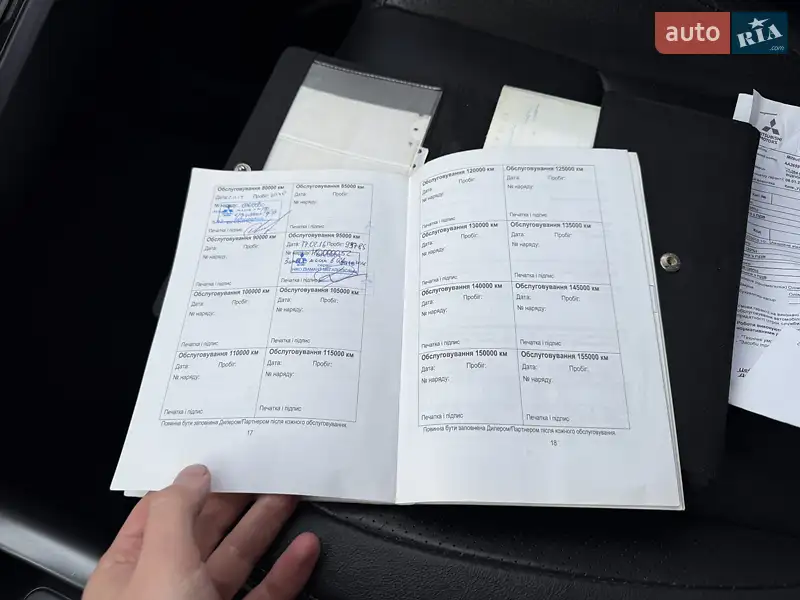 auto RIA .com
MITSUBISHI
MOTORS
Обслуговування 80000 км
Обслуговування 85000 км
Дата:
Пробіг:
Дата:
Пробіг:
№ наряду:
№ наряду:
Печатка і підпис
Печатка і підпис
Обслуговування 90000 км
Обслуговування 95000 км
Дата:
Пробіг:
Дата:
Пробіг:
№ наряду:
№ наряду:
Печатка і підпис
Печатка і підпис
Обслуговування 100000 км
Обслуговування 105000 км
Дата:
Пробіг:
Дата:
Пробіг:
№ наряду:
№ наряду:
Печатка і підпис
Печатка і підпис
Обслуговування 110000 км
Обслуговування 115000 км
Дата:
Пробіг:
Дата:
Пробіг:
№ наряду:
№ наряду:
Печатка і підпис
Печатка і підпис
Повинна бути заповнена Дилером/Партнером після кожного обслуговування.
17
Обслуговування 120000 км
Обслуговування 125000 км
Дата:
Пробіг:
Дата:
Пробіг:
№ наряду:
№ наряду:
Печатка і підпис
Печатка і підпис
Обслуговування 130000 км
Обслуговування 135000 км
Дата:
Пробіг:
Дата:
Пробіг:
№ наряду:
№ наряду:
Печатка і підпис
Печатка і підпис
Обслуговування 140000 км
Обслуговування 145000 км
Дата:
Пробіг:
Дата:
Пробіг:
№ наряду:
№ наряду:
Печатка і підпис
Печатка і підпис
Обслуговування 150000 км
Обслуговування 155000 км
Дата:
Пробіг:
Дата:
Пробіг:
№ наряду:
№ наряду:
Печатка і підпис
Печатка і підпис
Повинна бути заповнена Дилером/Партнером після кожного обслуговування.
18